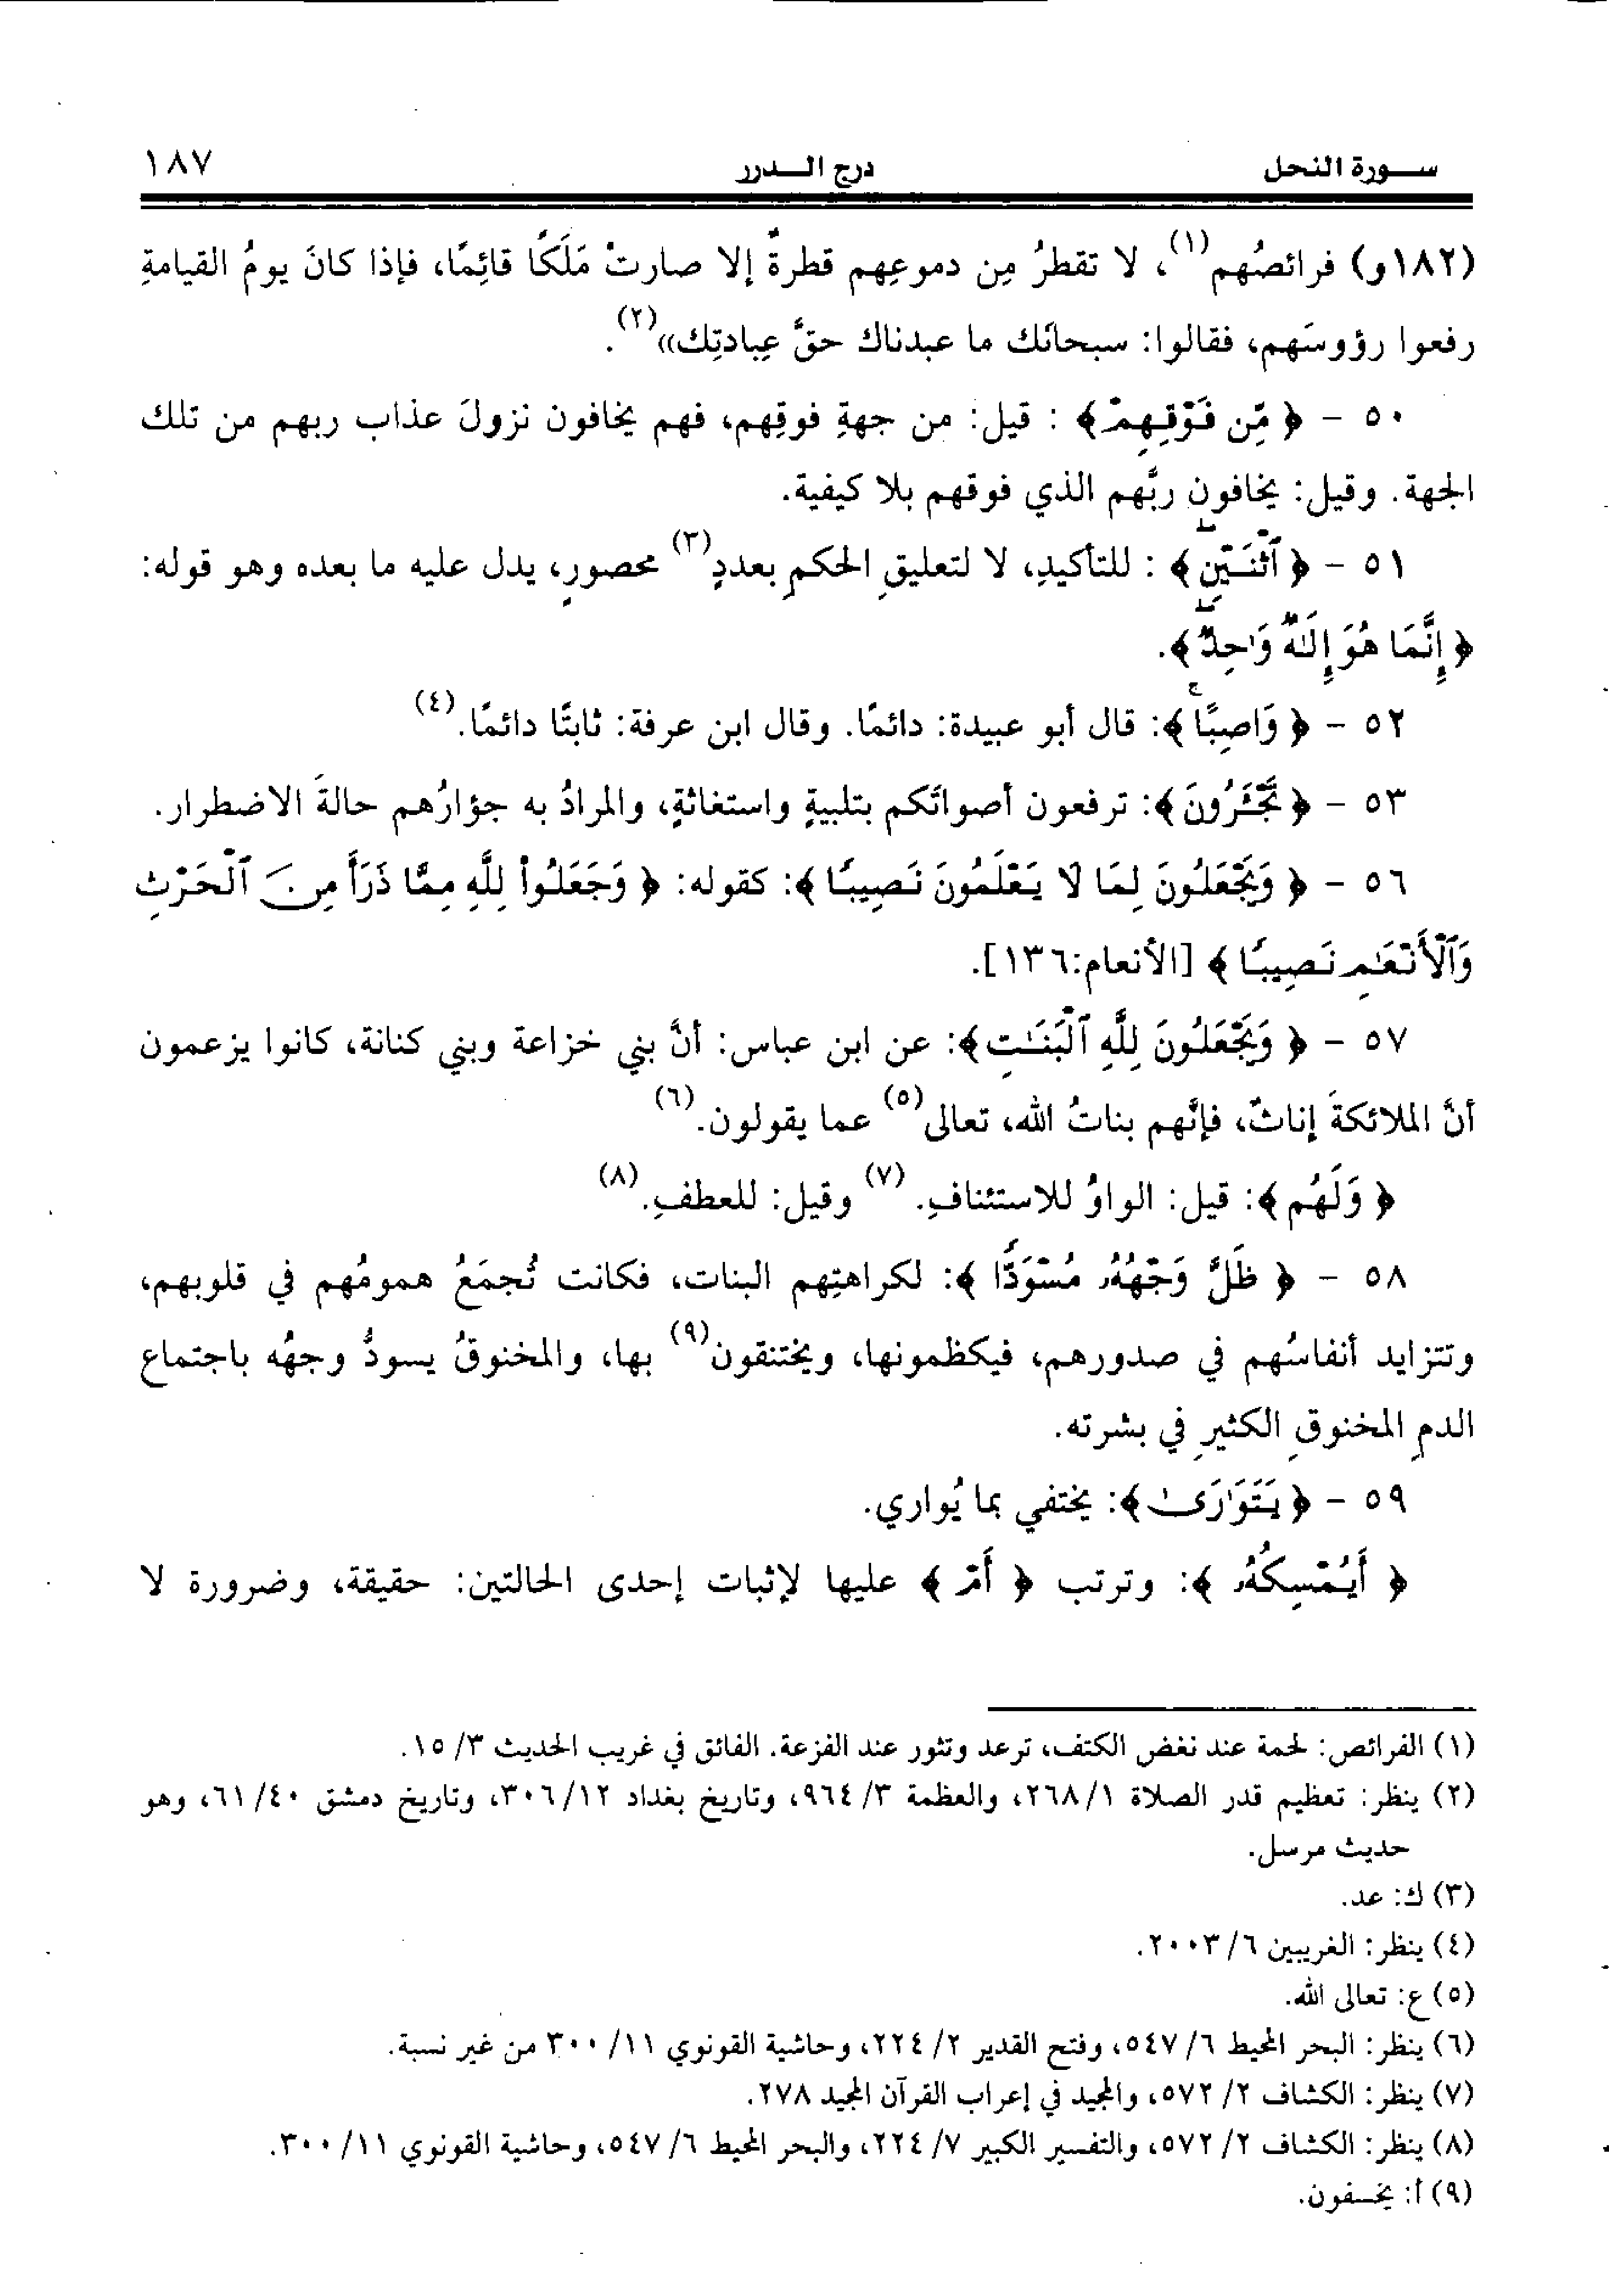 سـورة النحل درج الـدرر ١٨٧
(١٨٢و) فرائصُهم(١)، لا تقطرُ مِن دموعِهم قطرةٌ إلا صارتْ مَلَكًا قائِمًا، فإذا كانَ يومُ القيامةِ
رفعوا رؤوسَهم، فقالوا: سبحانَك ما عبدناك حقَّ عِبادتِك»(٢).
٥٠ - ﴿ مِّن فَوْقِهِمْ﴾ : قيل: من جهةِ فوقِهم، فهم يخافون نزولَ عذاب ربهم من تلك
الجهة. وقيل: يخافون ربَّهم الذي فوقهم بلا كيفية.
٥١ - ﴿ ٱثْنَيْنِۖ ﴾ : للتأكيدِ، لا لتعليقِ الحكمِ بعددٍ(٣) محصورٍ، يدل عليه ما بعده وهو قوله:
﴿ إِنَّمَا هُوَ إِلَٰهٌ وَٰحِدٌۖ ﴾.
٥٢ - ﴿ وَاصِبًاۚ ﴾: قال أبو عبيدة: دائمًا. وقال ابن عرفة: ثابتًا دائمًا.(٤)
٥٣ - ﴿ تَجْـَٔرُونَ ﴾: ترفعون أصواتَكم بتلبيةٍ واستغاثةٍ، والمرادُ به جؤارُهم حالةَ الاضطرار.
٥٦ - ﴿ وَيَجْعَلُونَ لِمَا لَا يَعْلَمُونَ نَصِيبًا ﴾: كقوله: ﴿ وَجَعَلُوا۟ لِلَّهِ مِمَّا ذَرَأَ مِنَ ٱلْحَرْثِ
وَٱلْأَنْعَٰمِ نَصِيبًا ﴾ [الأنعام:١٣٦].
٥٧ - ﴿ وَيَجْعَلُونَ لِلَّهِ ٱلْبَنَٰتِ﴾: عن ابن عباس: أنَّ بني خزاعة وبني كنانة، كانوا يزعمون
أنَّ الملائكةَ إناثٌ، فإنَّهم بناتُ الله، تعالى(٥) عما يقولون.(٦)
﴿ وَلَهُم ﴾: قيل: الواوُ للاستئنافِ.(٧) وقيل: للعطفِ.(٨)
٥٨ - ﴿ ظَلَّ وَجْهُهُۥ مُسْوَدًّا ﴾: لكراهتِهم البنات، فكانت تُجمَعُ همومُهم في قلوبهم،
وتتزايد أنفاسُهم في صدورهم، فيكظمونها، ويختنقون(٩) بها، والمخنوقُ يسودُّ وجهُه باجتماع
الدمِ المخنوقِ الكثيرِ في بشرته.
٥٩ - ﴿ يَتَوَٰرَىٰ ﴾: يختفي بما يُواري.
﴿ أَيُمْسِكُهُۥ ﴾: وترتب ﴿ أَمْ ﴾ عليها لإثبات إحدى الحالتين: حقيقة، وضرورة لا
(١) الفرائص: لحمة عند نغض الكتف، ترعد وتثور عند الفزعة. الفائق في غريب الحديث ٣/ ١٥.
(٢) ينظر: تعظيم قدر الصلاة ١/ ٢٦٨، والعظمة ٣/ ٩٦٤، وتاريخ بغداد ١٢/ ٣٠٦، وتاريخ دمشق ٤٠/ ٦١، وهو
حديث مرسل.
(٣) ك: عد.
(٤) ينظر: الغريبين ٦/ ٢٠٠٣.
(٥) ع: تعالى الله.
(٦) ينظر: البحر المحيط ٦/ ٥٤٧، وفتح القدير ٢/ ٢٢٤، وحاشية القونوي ١١/ ٣٠٠ من غير نسبة.
(٧) ينظر: الكشاف ٢/ ٥٧٢، والمجيد في إعراب القرآن المجيد ٢٧٨.
(٨) ينظر: الكشاف ٢/ ٥٧٢، والتفسير الكبير ٧/ ٢٢٤، والبحر المحيط ٦/ ٥٤٧، وحاشية القونوي ١١/ ٣٠٠.
(٩) أ: يخسفون.